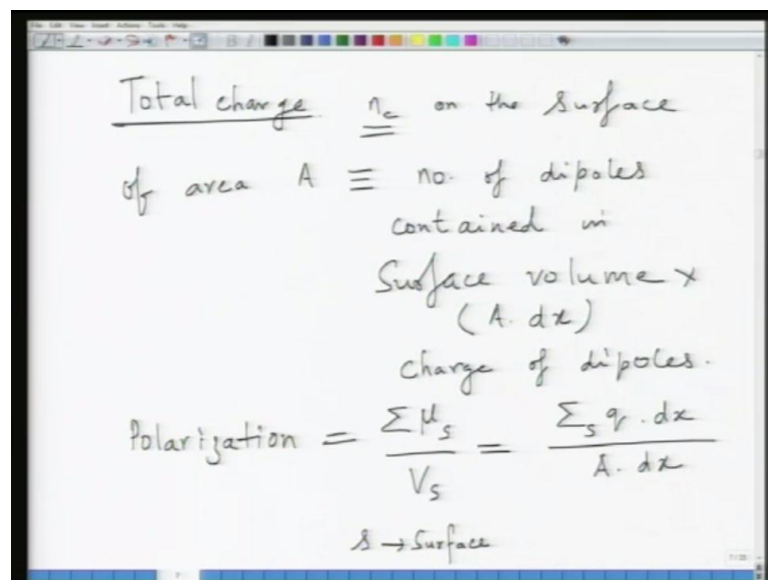 File Edit View Insert Actions Tools Help
Total charge n_c on the surface
of area A ≡ no. of dipoles
contained in
Surface volume ×
(A. dx)
charge of dipoles.
Polarization = Σ μ_s / V_s = Σ_s q . dx / A. dx
s → Surface